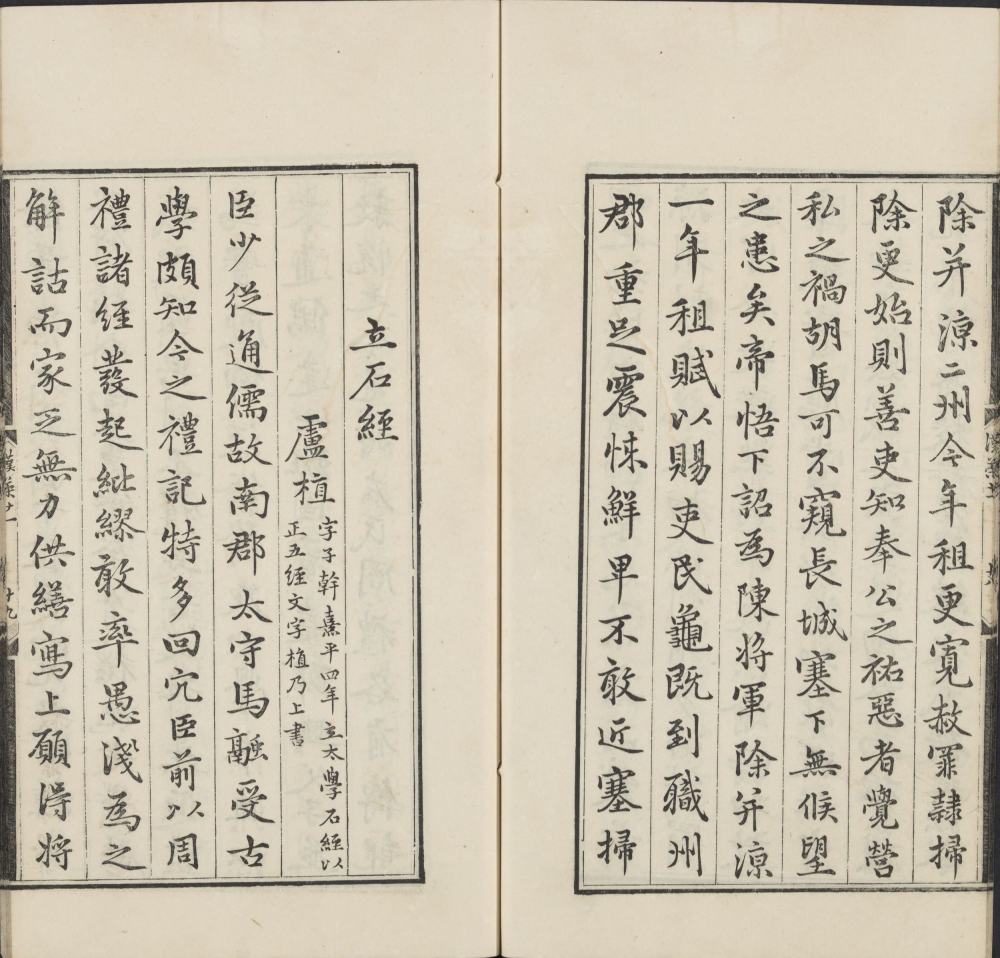 除并涼二州今年租更寛赦罪隷掃
除更始則善吏知奉公之祐惡者覺營
私之禍胡馬可不窺長城塞下無候望
之患矣帝悟下詔為陳將軍除并涼
一年租賦以賜吏民龜既到職州
郡重足震悚鮮卑不敢近塞掃
立石經
盧植
字子幹熹平四年立太學石經以
正五經文字植乃上書
臣少從通儒故南郡太守馬融受古
學頗知今之禮記特多回宂臣前以周
禮諸經發起紕繆敢率愚淺為之
解詁而家乏無力供繕寫上願得將